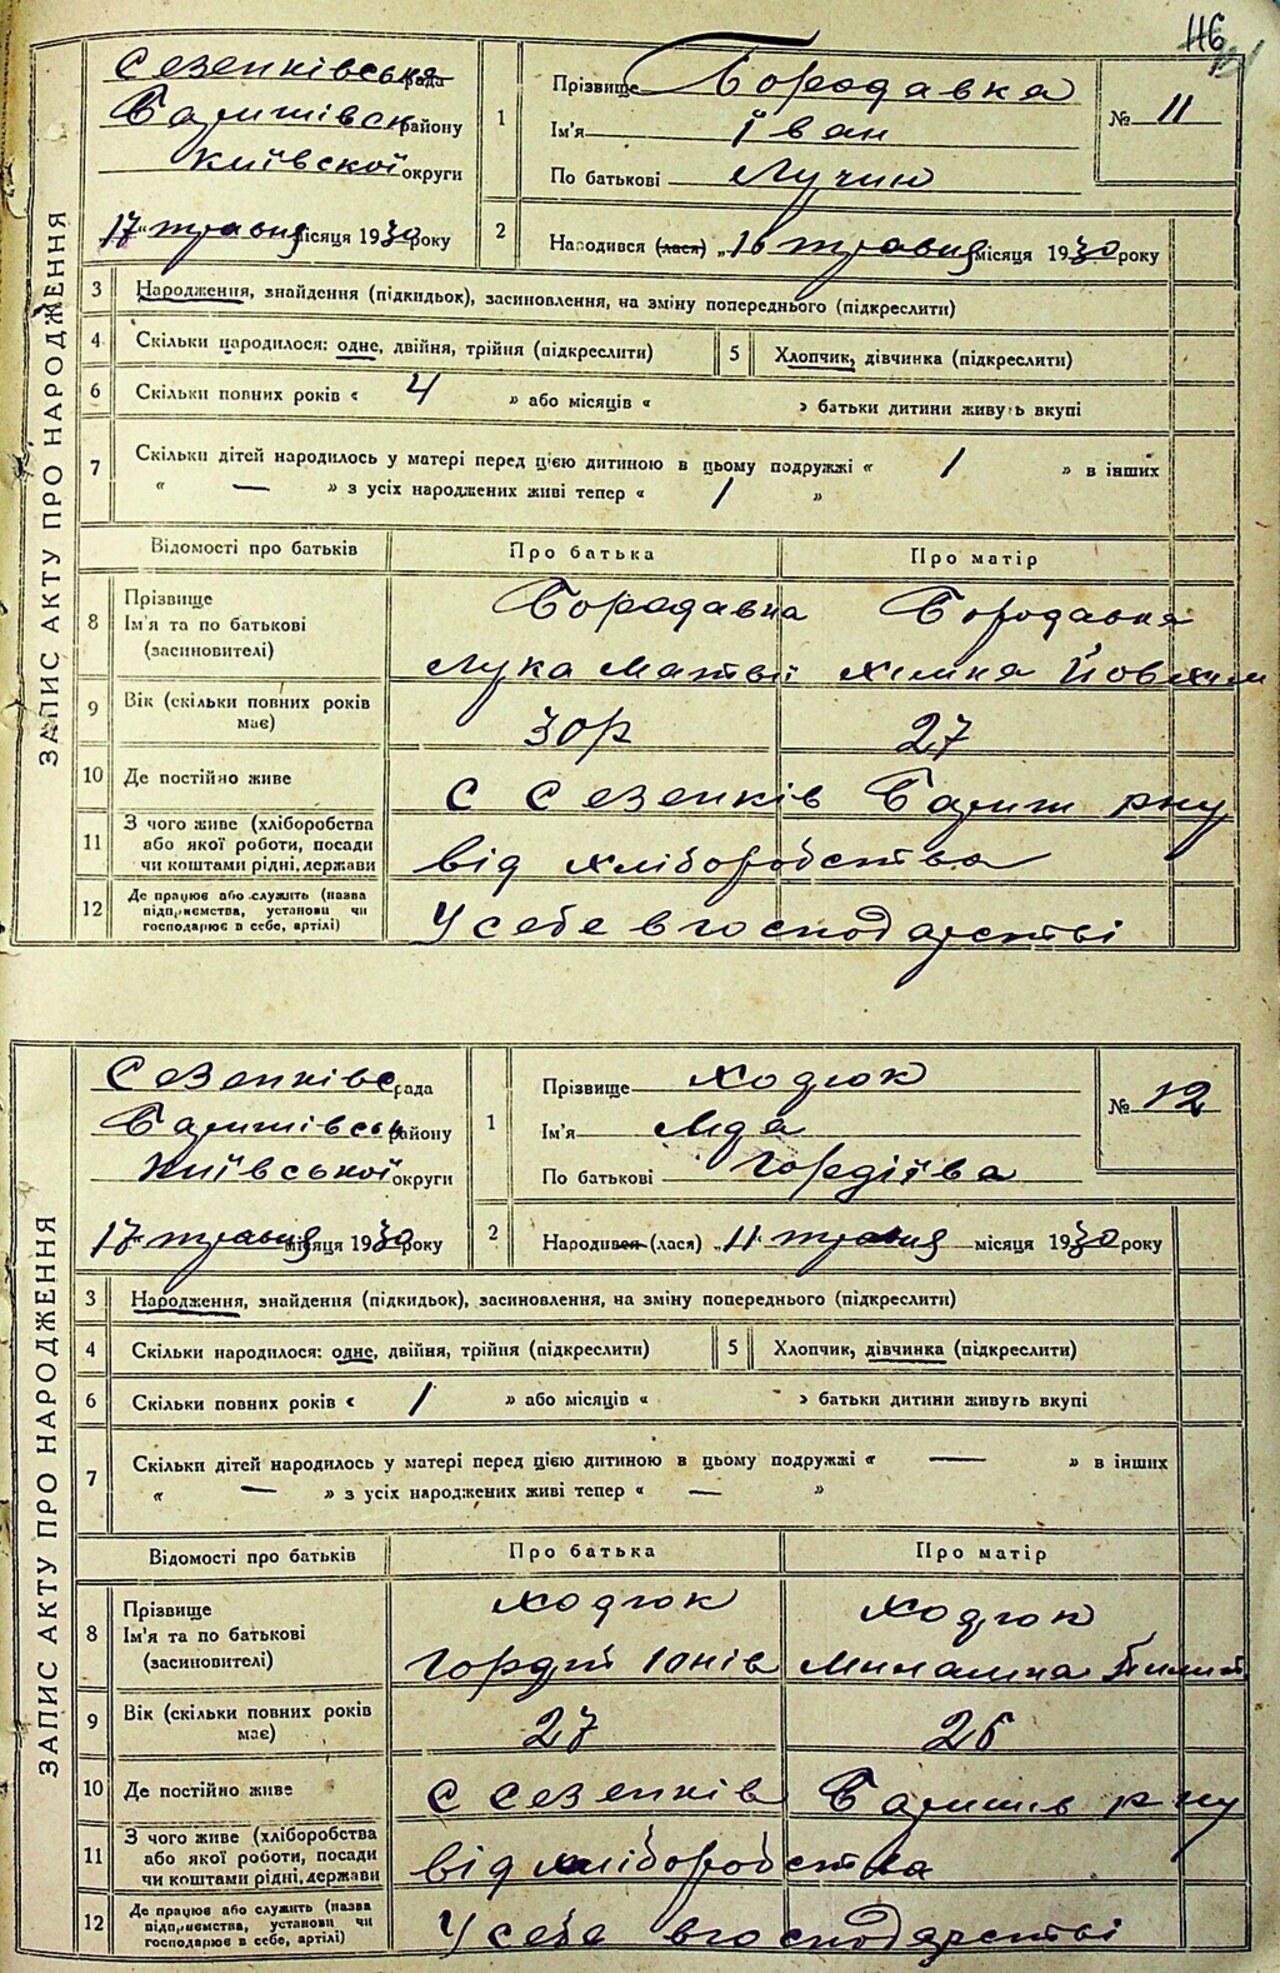 116
ЗАПИС АКТУ ПРО НАРОДЖЕННЯ
Сезенківська рада
Баришівськ району
Київскої округи
17 травня місяця 1930 року
1
Прізвище Бородавка
Ім'я Іван
По батькові Лучин
№ 11
2
Народився (лася) „16 травня місяця 1930 року
3 Народження, знайдення (підкидьок), засиновлення, на зміну попереднього (підкреслити)
4 Скільки народилося: одне, двійня, трійня (підкреслити) 5 Хлопчик, дівчинка (підкреслити)
6 Скільки повних років « 4 » або місяців « » батьки дитини живуть вкупі
7 Скільки дітей народилось у матері перед цією дитиною в цьому подружжі « 1 » в інших
« — » з усіх народжених живі тепер « 1 »
Відомості про батьків Про батька Про матір
8 Прізвище Ім'я та по батькові (засиновителі)
Бородавка Бородавка
Лука Матвії Химка Йовхим
9 Вік (скільки повних років має) 30р 27
10 Де постійно живе с Сезенків Бариш рну
11 З чого живе (хліборобства або якої роботи, посади чи коштами рідні, держави від хліборобства
12 Де працює або служить (назва підприємства, установи чи господарює в себе, артілі) У себе в господарстві
ЗАПИС АКТУ ПРО НАРОДЖЕННЯ
Сезенківс рада
Баришівськ району
Київської округи
17 травня місяця 1930 року
1
Прізвище Ходюк
Ім'я Мда
По батькові Гордіїва
№ 12
2
Народився (лася) „11 травня місяця 1930 року
3 Народження, знайдення (підкидьок), засиновлення, на зміну попереднього (підкреслити)
4 Скільки народилося: одне, двійня, трійня (підкреслити) 5 Хлопчик, дівчинка (підкреслити)
6 Скільки повних років « 1 » або місяців « » батьки дитини живуть вкупі
7 Скільки дітей народилось у матері перед цією дитиною в цьому подружжі « — » в інших
« — » з усіх народжених живі тепер « — »
Відомості про батьків Про батька Про матір
8 Прізвище Ім'я та по батькові (засиновителі)
Ходюк Ходюк
Гордій Юнів
9 Вік (скільки повних років має) 27 26
10 Де постійно живе с Сезенків Баришів рну
11 З чого живе (хліборобства або якої роботи, посади чи коштами рідні, держави від хліборобства
12 Де працює або служить (назва підприємства, установи чи господарює в себе, артілі) У себе в господарстві